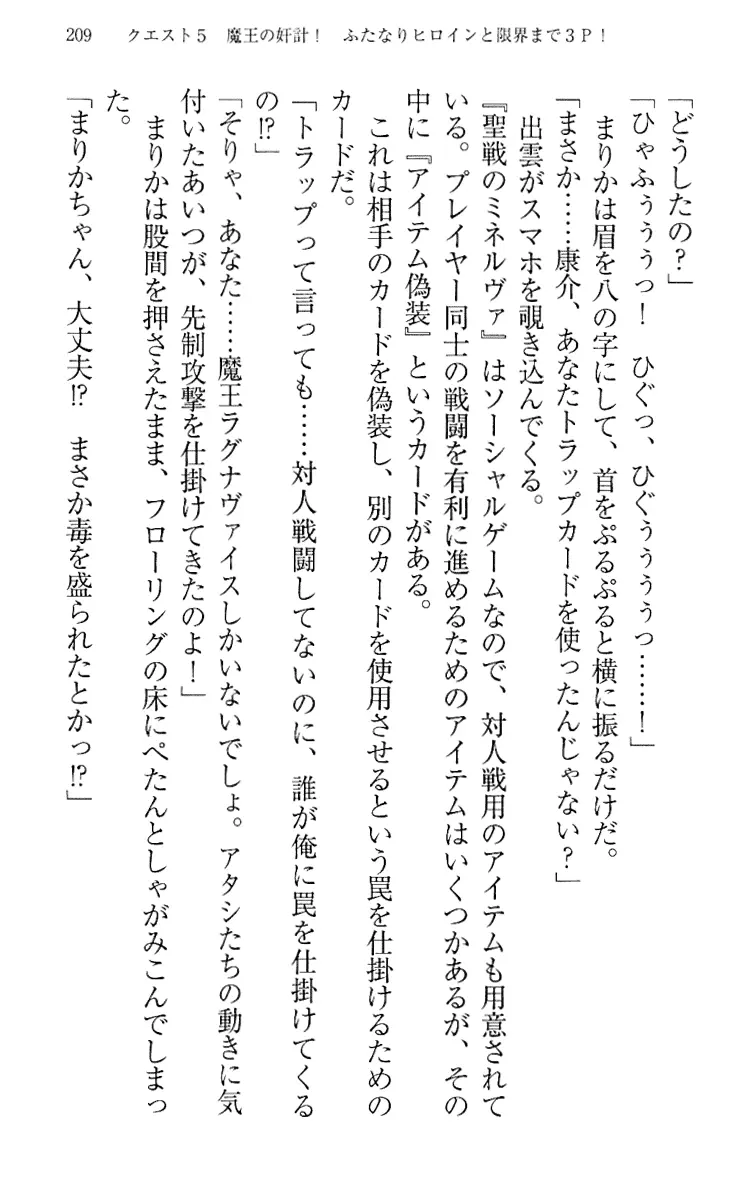 209　クエスト５　魔王の奸計！　ふたなりヒロインと限界まで３Ｐ！
「どうしたの？」
「ひゃふぅぅぅっ！　ひぐっ、ひぐぅぅぅぅっ……！」
　まりかは眉を八の字にして、首をぷるぷると横に振るだけだ。
「まさか……康介、あなたトラップカードを使ったんじゃない？」
　出雲がスマホを覗き込んでくる。
『聖戦のミネルヴァ』はソーシャルゲームなので、対人戦用のアイテムも用意されて
いる。プレイヤー同士の戦闘を有利に進めるためのアイテムはいくつかあるが、その
中に『アイテム偽装』というカードがある。
　これは相手のカードを偽装し、別のカードを使用させるという罠を仕掛けるための
カードだ。
「トラップって言っても……対人戦闘してないのに、誰が俺に罠を仕掛けてくる
の⁉」
「そりゃ、あなた……魔王ラグナヴァイスしかいないでしょ。アタシたちの動きに気
付いたあいつが、先制攻撃を仕掛けてきたのよ！」
　まりかは股間を押さえたまま、フローリングの床にぺたんとしゃがみこんでしまっ
た。
「まりかちゃん、大丈夫⁉　まさか毒を盛られたとかっ⁉」